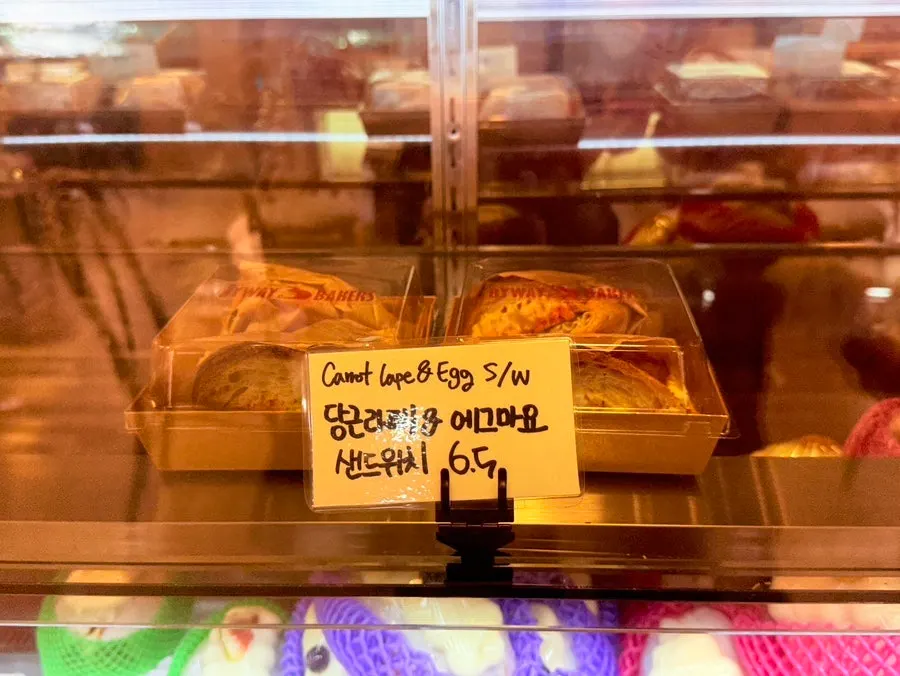 BYWAY BAKERS
BYWAY BAKERS
Carrot Lape & Egg S/W
당근라페 & 에그마요
샌드위치 6.5